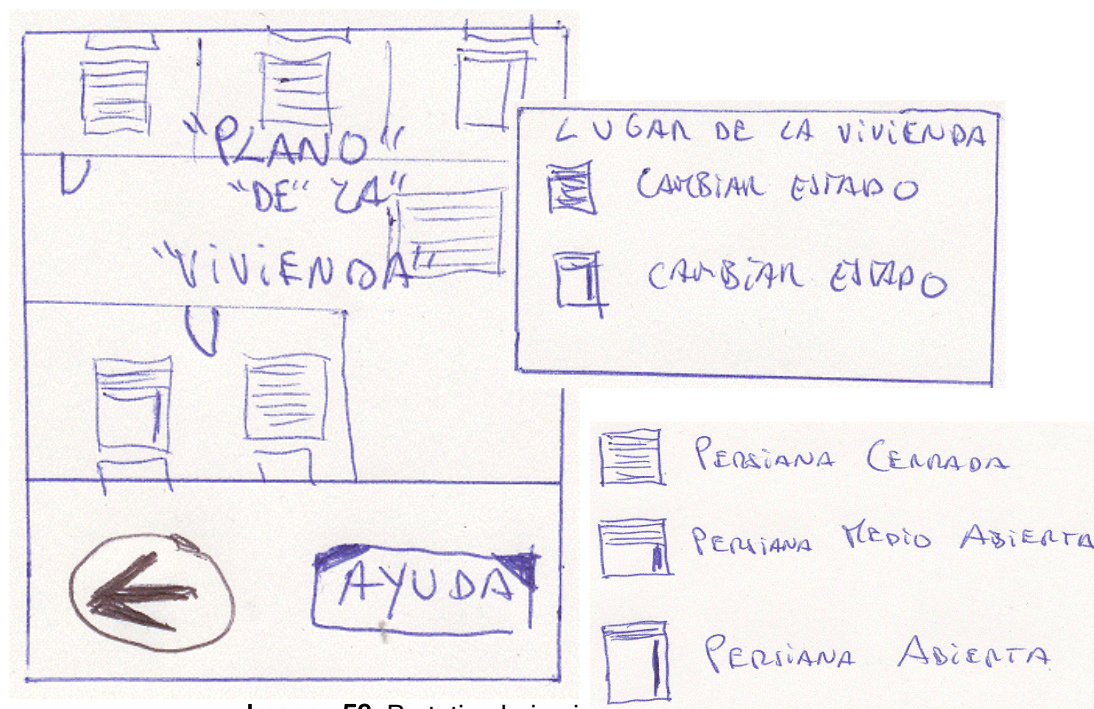 "PLANO"
"DE" LA"
"VIVIENDA"
AYUDA
LUGAR DE LA VIVIENDA
CAMBIAR ESTADO
CAMBIAR ESTADO
PERSIANA CERRADA
PERSIANA MEDIO ABIERTA
PERSIANA ABIERTA